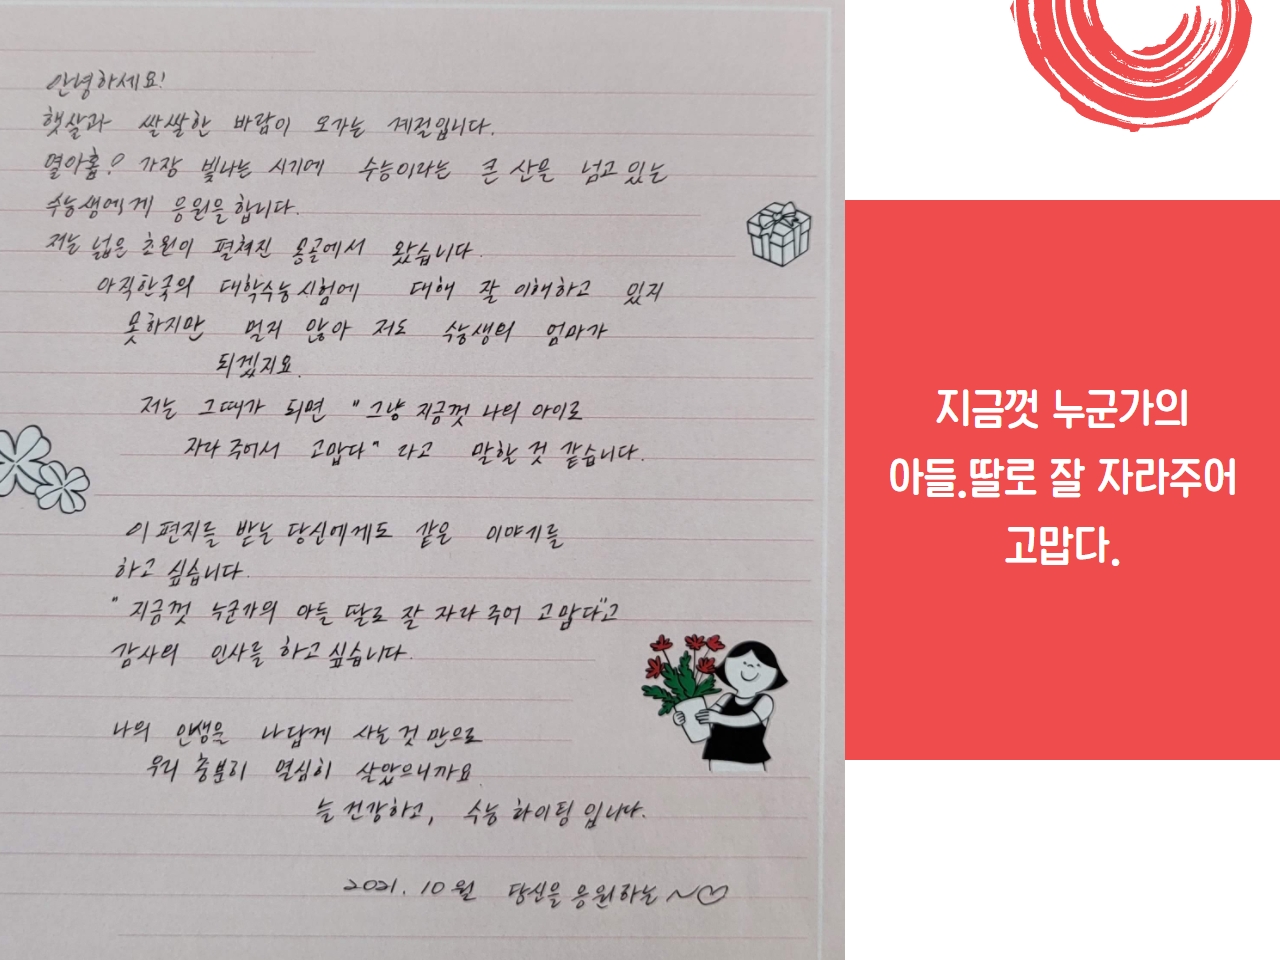 안녕하세요!
햇살과 쌀쌀한 바람이 오가는 계절입니다.
열아홉? 가장 빛나는 시기에 수능이라는 큰 산을 넘고 있는
수능생에게 응원을 합니다.
저는 넓은 초원이 펼쳐진 몽골에서 왔습니다.
아직 한국의 대학수능시험에 대해 잘 이해하고 있지
못하지만 멀지 않아 저도 수능생의 엄마가
되겠지요.
저는 그때가 되면 "그냥 지금껏 나의 아이로
자라 주어서 고맙다" 라고 말할 것 같습니다.
이 편지를 받는 당신에게도 같은 이야기를
하고 싶습니다.
"지금껏 누군가의 아들 딸로 잘 자라 주어 고맙다"고
감사의 인사를 하고 싶습니다.
나의 인생을 나답게 사는 것 만으로
우리 충분히 열심히 살았으니까요.
늘 건강하고, 수능 화이팅 입니다.
2021. 10월 당신을 응원하는 ~♡
지금껏 누군가의
아들.딸로 잘 자라주어
고맙다.